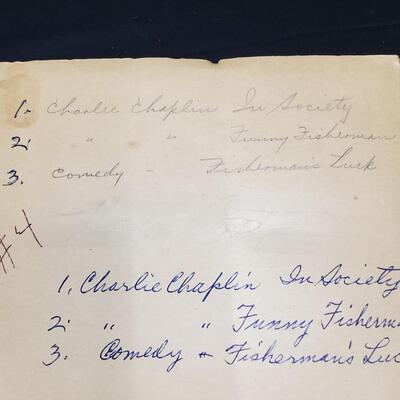 1. Charlie Chaplin In Society
2. " " Funny Fisherman
3. Comedy - Fisherman's Luck
#4
1, Charlie Chaplin In Society
2. " " Funny Fisherma
3. Comedy - Fisherman's Luc